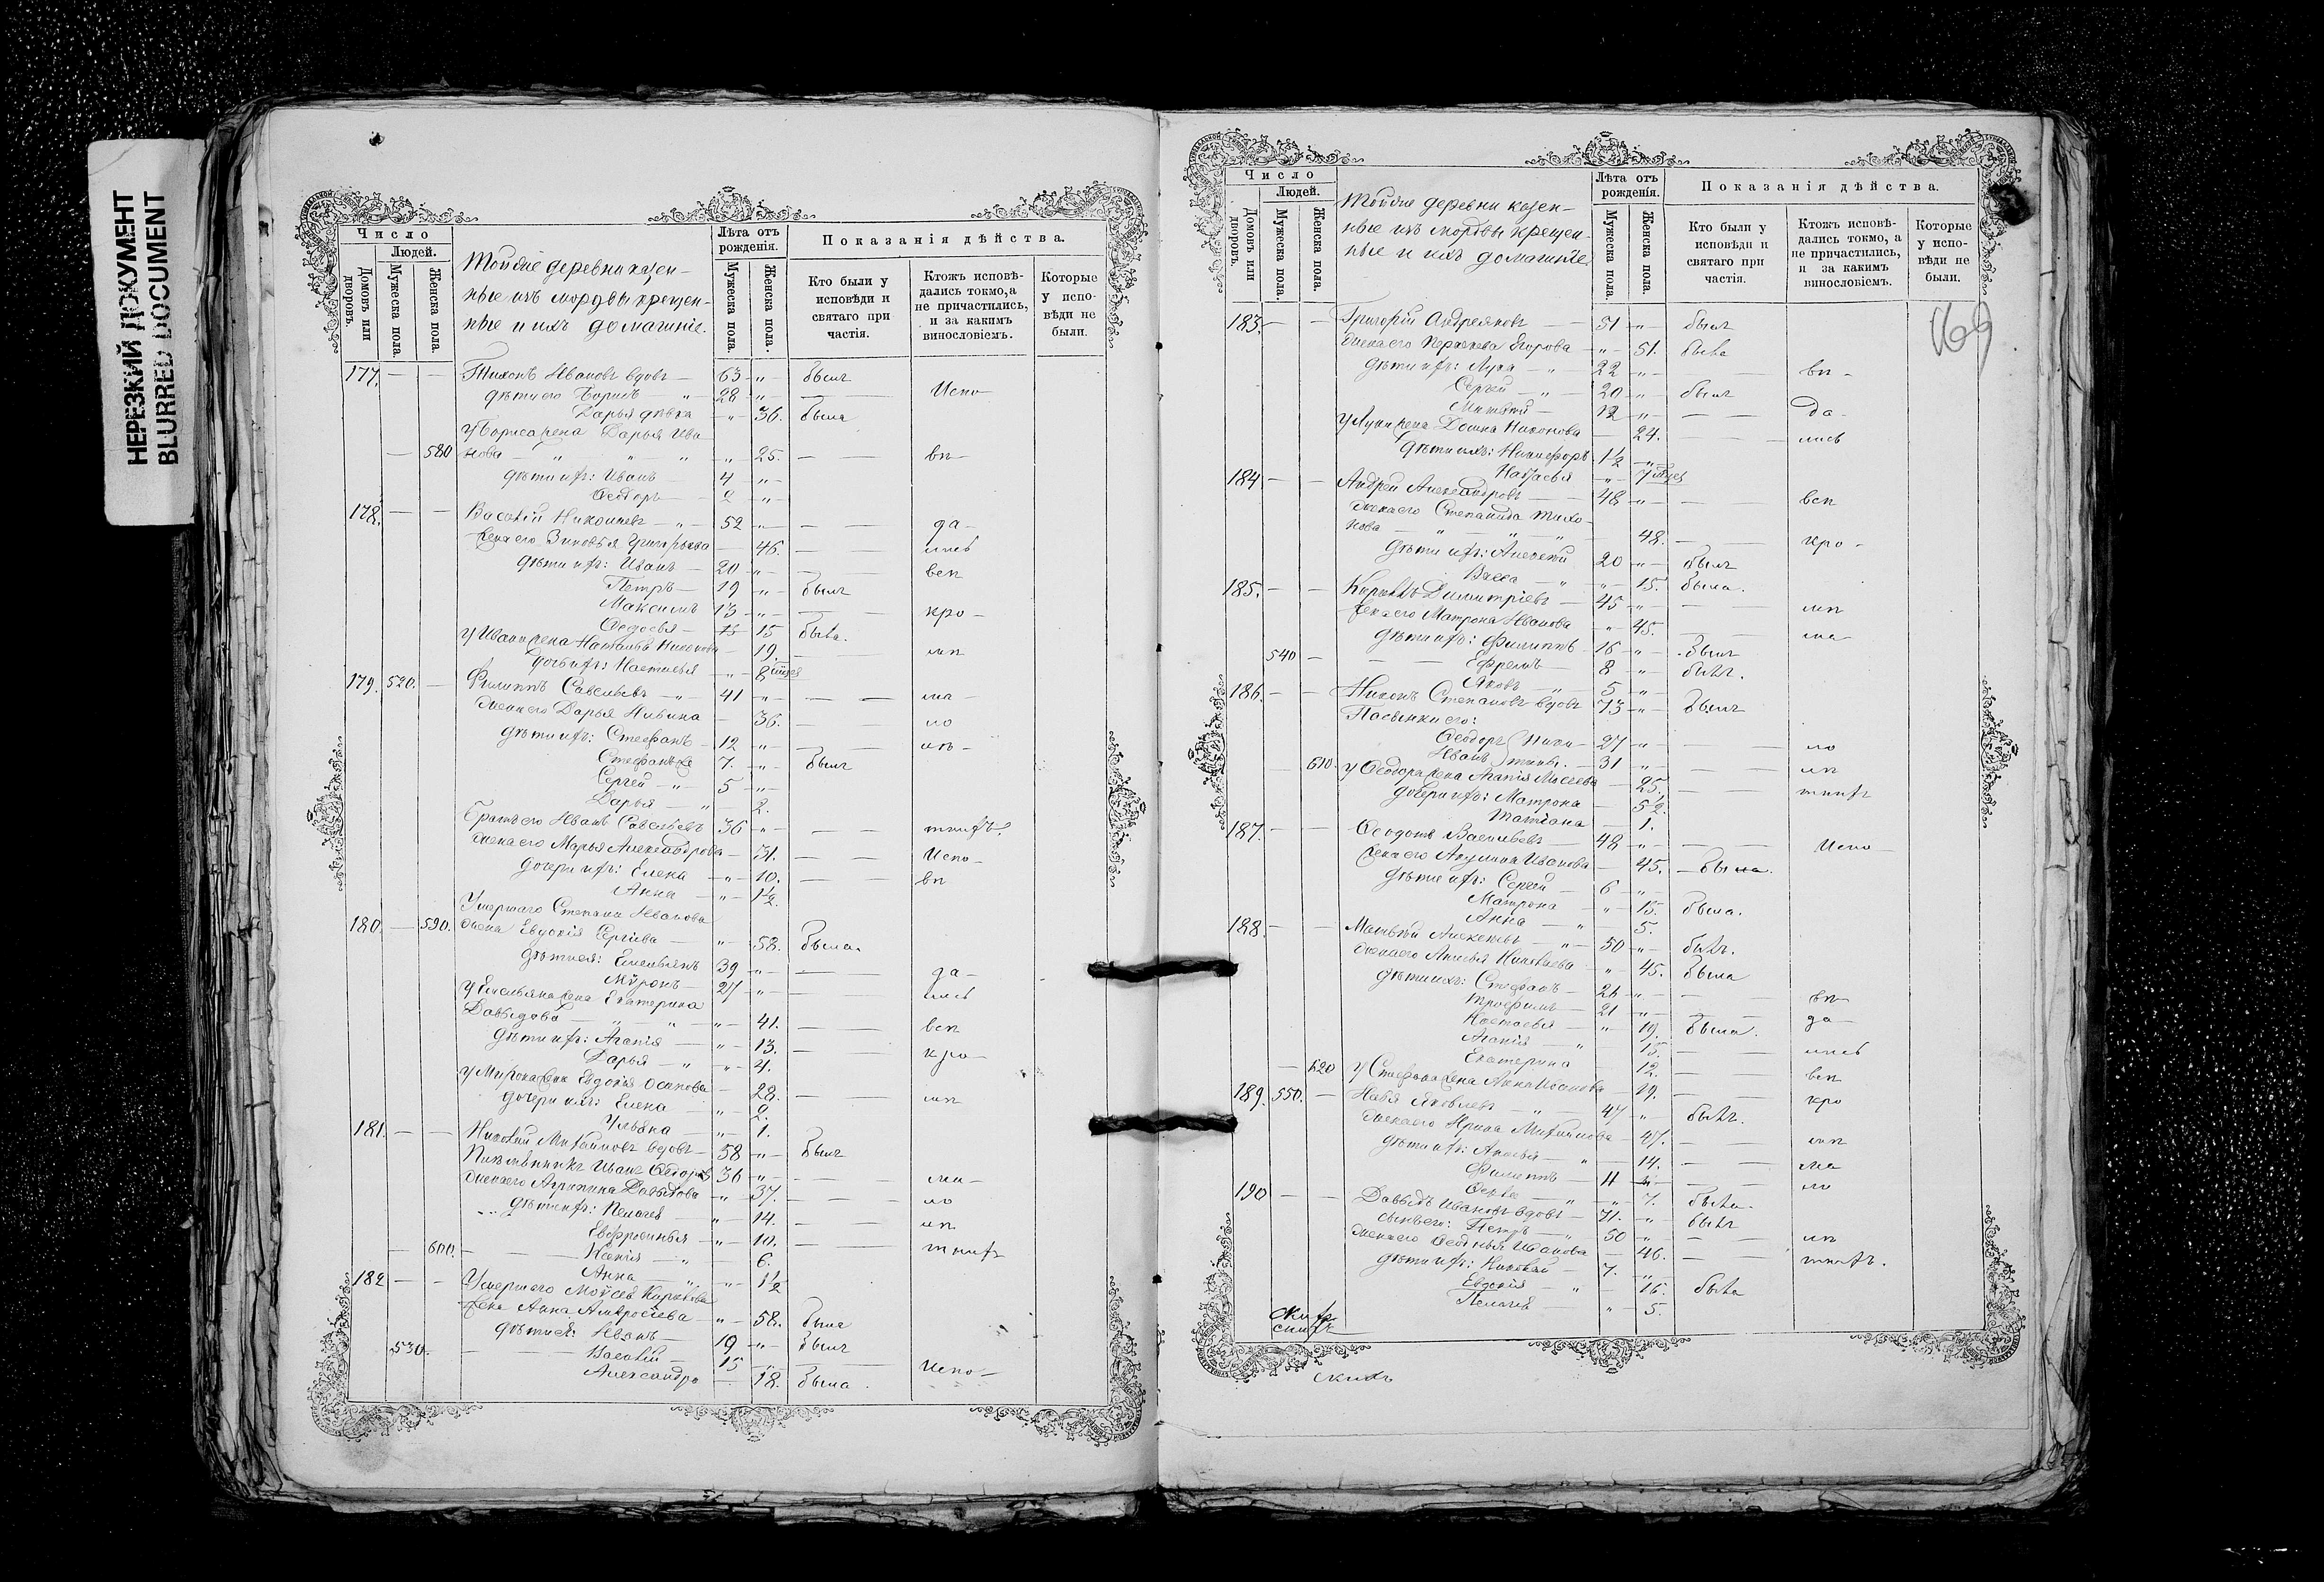 НЕРЕЗКИЙ ДОКУМЕНТ
BLURRED DOCUMENT
Число
Людей.
Домовъ или дворовъ.
Мужеска пола.
Женска пола.
Тойже деревни казен-
ные изъ мордвы крещен-
ные и ихъ домашніе.
Лѣта отъ рожденія.
Мужеска пола.
Женска пола.
Показанія дѣйства.
Кто были у исповѣди и святаго при частія.
Ктожъ исповѣ-дались токмо, а не причастились, и за какимъ винословіемъ.
Которые у испо-вѣди не были.
177. — — Тихонъ Ивановъ вдовъ — 63 " былъ
дѣти его Борисъ — " 28 " — Испо
Дарья дѣвка — " 36. была
у Бориса жена Дарья Ива
— 580 нова — " " " " 25. — — вѣ—
дѣти ихъ: Иванъ 4 "
Ѳеодоръ — 2 "
178. — — Василій Николаевъ — " 52 " — — да—
жена его Зиновья Григорьева — 46. — — лись
дѣти ихъ: Иванъ — 20 " — — всѣ
Петръ — 19 " былъ
Максимъ 13 " — — кро—
Ѳедосья — 15 была.
у Ивана жена Наталья Никонова — 19. — — мѣ
дочь ихъ: Настасья — " 8
179. 520. — Филиппъ Савельевъ — " 41 " — — ма—
жена его Дарья Ильина — 36. — ло
дѣти ихъ: Стефанъ — 12 " — — лѣ—
7. " былъ
Сергей — " 5 "
Дарья — " 2.
Братъ его Иванъ Савельевъ 36 " — — тнихъ.
жена его Марья Александрова — 31. — — Испо—
дочери ихъ: Елена — " 10. — — вѣ
Анна — " 1 1/2.
Умершаго Степана Иванова
180. — 590. жена Евдокія Сергіева — " 58. была.
дѣти ея: Емельянъ 39 " — — да—
Миронъ — 27 " — — лись
у Емельяна жена Екатерина
Давыдова — " " " 41. — — всѣ
дѣти ихъ: Агапія — " 13. — — кро—
Дарья — " " 4.
у Мирона жена Евдокія Осипова — 28. — — мѣ
дочери ихъ: Елена " 2.
Ульяна — " 1.
181. — — Николай Михайловъ вдовъ — 58 " былъ
Иванъ Ѳедоровъ 36 " — — ма—
жена его Агрипина Давыдова " 37. — — ло
дѣти ихъ: Пелагея " 14. — — лѣ
Евфросинья — " 10. — тнихъ
— 600. — — — Ксенія — " 6.
Анна " " 1 1/2
182 — — Умершаго Моѵсея Карпова
жена Анна Амвросіева — " 58. была
дѣти ея: Иванъ — 19 " былъ
530. — — — Василій — 15 " — — Испо—
Александра — 18. была.
Число
Людей.
Домовъ или дворовъ.
Мужеска пола.
Женска пола.
Тойже деревни казен-
ные изъ мордвы крещен-
ные и ихъ домашніе
Лѣта отъ рожденія.
Мужеска пола.
Женска пола.
Показанія дѣйства.
Кто были у исповѣди и святаго при частія.
Ктожъ исповѣ-дались токмо, а не причастились, и за какимъ винословіемъ.
Которые у испо-вѣди не были.
169
183. — — Григорій Андреяновъ — 51 " былъ
жена его Егорова — " 51. была
дѣти ихъ: Лука — " 22 " — — вѣ—
Сергей — " 20 " былъ
12 " — — да—
у Луки жена Домна Никонова — 24. — — лись
дѣти ихъ: Никифоръ 1 1/2 "
Настасья " 7
184 — — Андрей Александровъ — 48 " — — всѣ
жена его Степанида Тихо-
нова — " " " 48. — — кро—
дѣти ихъ: Алексѣй 20 " былъ
Васса — " " 15. была.
185. — — Димитріевъ — 45 " — — мѣ
жена его Матрона Иванова " 45. — — ма—
дѣти ихъ: Филиппъ 16 " былъ
540 — — — Ефремъ — 8 " былъ.
Яковъ — " 5 "
186. — — Никонъ Степановъ вдовъ 73 " былъ
Пасынки его:
Ѳеодоръ 27 " — — ло
Иванъ 31 " — — лѣ
610. у Ѳеодора жена Агапія — 25. — — тнихъ
дочери ихъ: Матрона — 5 1/2.
Татіана — 1.
187. — — Ѳеодотъ Васильевъ — 48 " — — Испо
жена его Акулина Иванова — 45. — была.
дѣти ихъ: Сергей — 6 "
Матрона " 15. была.
Анна — " 5.
188. — — Матвѣй Алексѣевъ — " 50 " былъ.
жена его Анисья Николаева — " 45. была
дѣти ихъ: Стефанъ — 26 " — вѣ—
Трофимъ — 21 " — — да—
Настасья — " 19. была.
Агапія — " 15. — — лись
Екатерина 12. — — всѣ
— 620 у Стефана жена Анна Иванова — 19. — — кро
189. 550. — Яковлевъ — " 47 " былъ.
жена его Ирина Михайлова — 47. — — мѣ
дѣти ихъ: Анисья — " 14. — — ма
Филиппъ — 11 — — ло
" 7. была.
190 — — Давыдъ Ивановъ вдовъ — 71. " былъ
сынъ его: Петръ — " 50 " — — лѣ
жена его Ѳеодосья Иванова — 46. — — тнихъ.
дѣти ихъ: Николай — 7. "
Евдокія — " 16. была
Пелагея — " 5.
скихъ